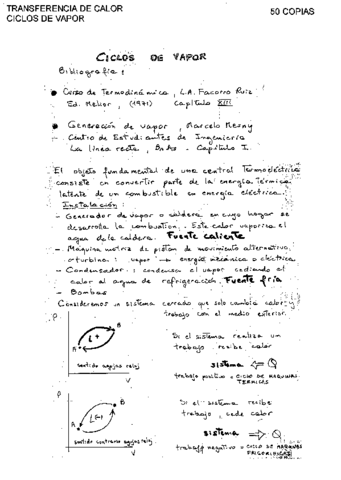 TRANSFERENCIA DE CALOR
CICLOS DE VAPOR
50 COPIAS
CICLOS DE VAPOR
Bibliografía:
Curso de Termodinámica, L.A. Facorro Ruiz
Ed. Mellior, (1971) Capítulo XIII
Generación de vapor, Marcelo Mesny
Centro de Estudiantes de Ingeniería
La línea recta, BsAs - Capítulo I
El objeto fundamental de una central Termoeléctrica
consiste en convertir parte de la energía térmica
latente de un combustible en energía eléctrica.
Instalación:
- Generador de vapor o caldera en cuyo hogar se
desarrolla la combustion. Este calor vaporiza el
agua de la caldera. Fuente caliente
- Máquina motriz de pistón de movimiento alternativo,
o turbina: vapor → energía mecánica o eléctrica
- Condensador: condensa el vapor cediendo el
calor al agua de refrigeración. Fuente fría
- Bombas
Consideremos un sistema cerrado que solo cambia calor y
trabajo con el medio exterior.
P
B
L+
A
sentido agujas reloj
V
Si el sistema realiza un
trabajo recibe calor
sistema ⇐ Q
trabajo positivo = CICLO DE MAQUINAS
TERMICAS
P
B
L(-)
A
sentido contrario agujas reloj
V
Si el sistema recibe
trabajo, cede calor
sistema ⇒ Q
trabajo negativo = CICLO DE MAQUINAS
FRIGORIFICAS